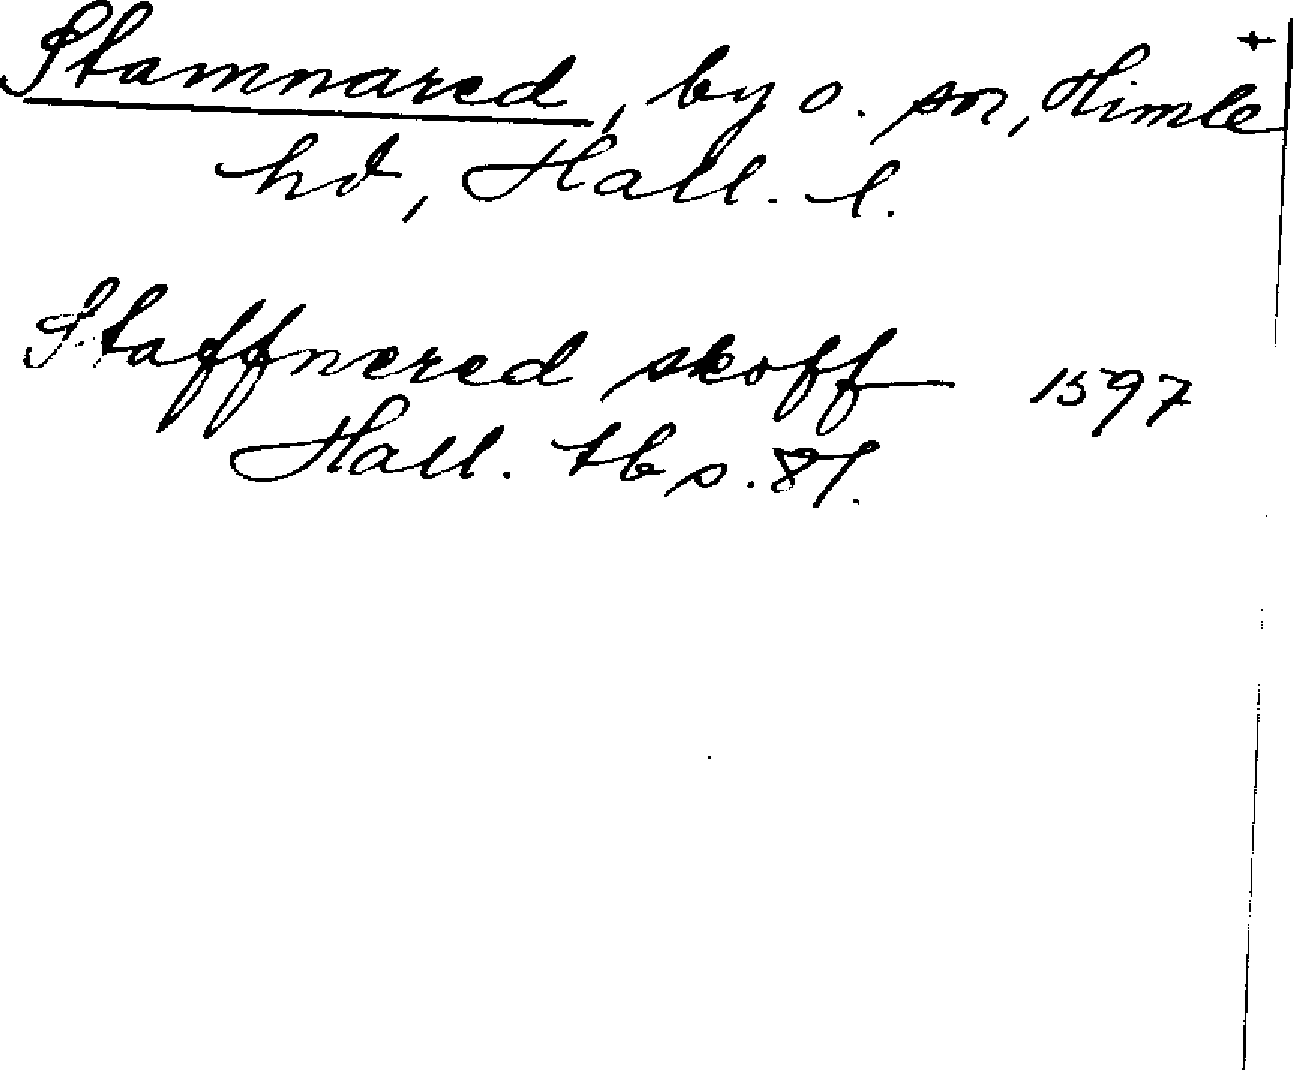 Stamnared, by o. sn, Himle +
hd, Hall. l.
Staffnered skoff 1597
Hall. tb s. 87.